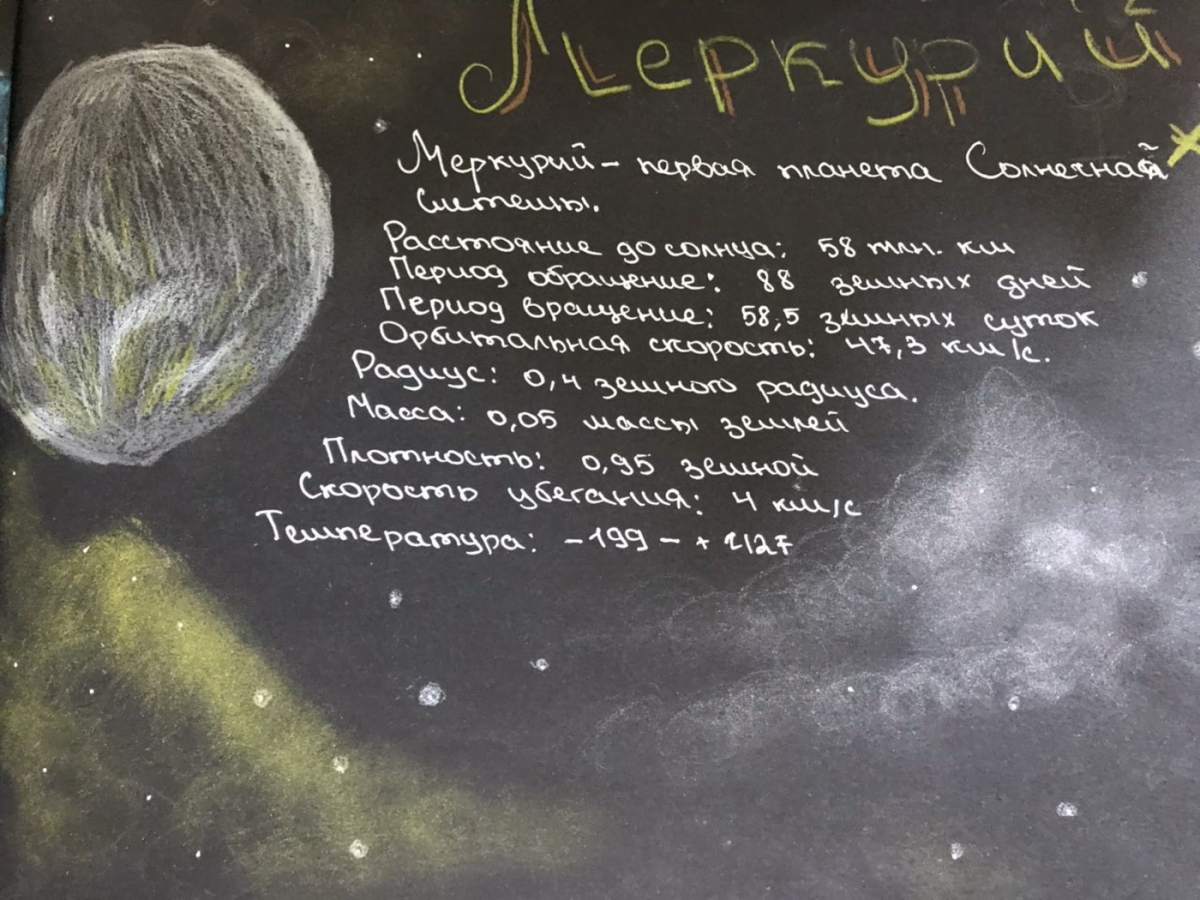 Меркурий
Меркурий - первая планета Солнечной
системы.
Расстояние до солнца: 58 млн. км
Период обращение: 88 земных дней
Период вращение: 58,5 земных суток
Орбитальная скорость: 47,3 км/с.
Радиус: 0,4 земного радиуса.
Масса: 0,05 массы землей
Плотность: 0,95 земной
Скорость убегания: 4 км/с
Температура: -199 - +